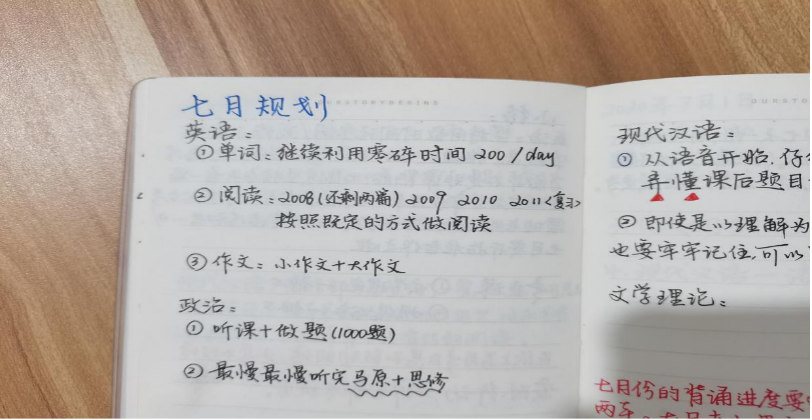 七月规划
英语：
①单词：继续利用零碎时间 200/day
②阅读：2008(还剩两篇) 2009 2010 2011<复习>
按照既定的方式做阅读
③作文：小作文+大作文
政治：
①听课+做题(1000题)
②最慢最慢听完马原+思修
现代汉语：
①从语音开始，仔
弄懂课后题目
②即使是以理解为
也要牢牢记住，可以
文学理论：
七月份的背诵进度要